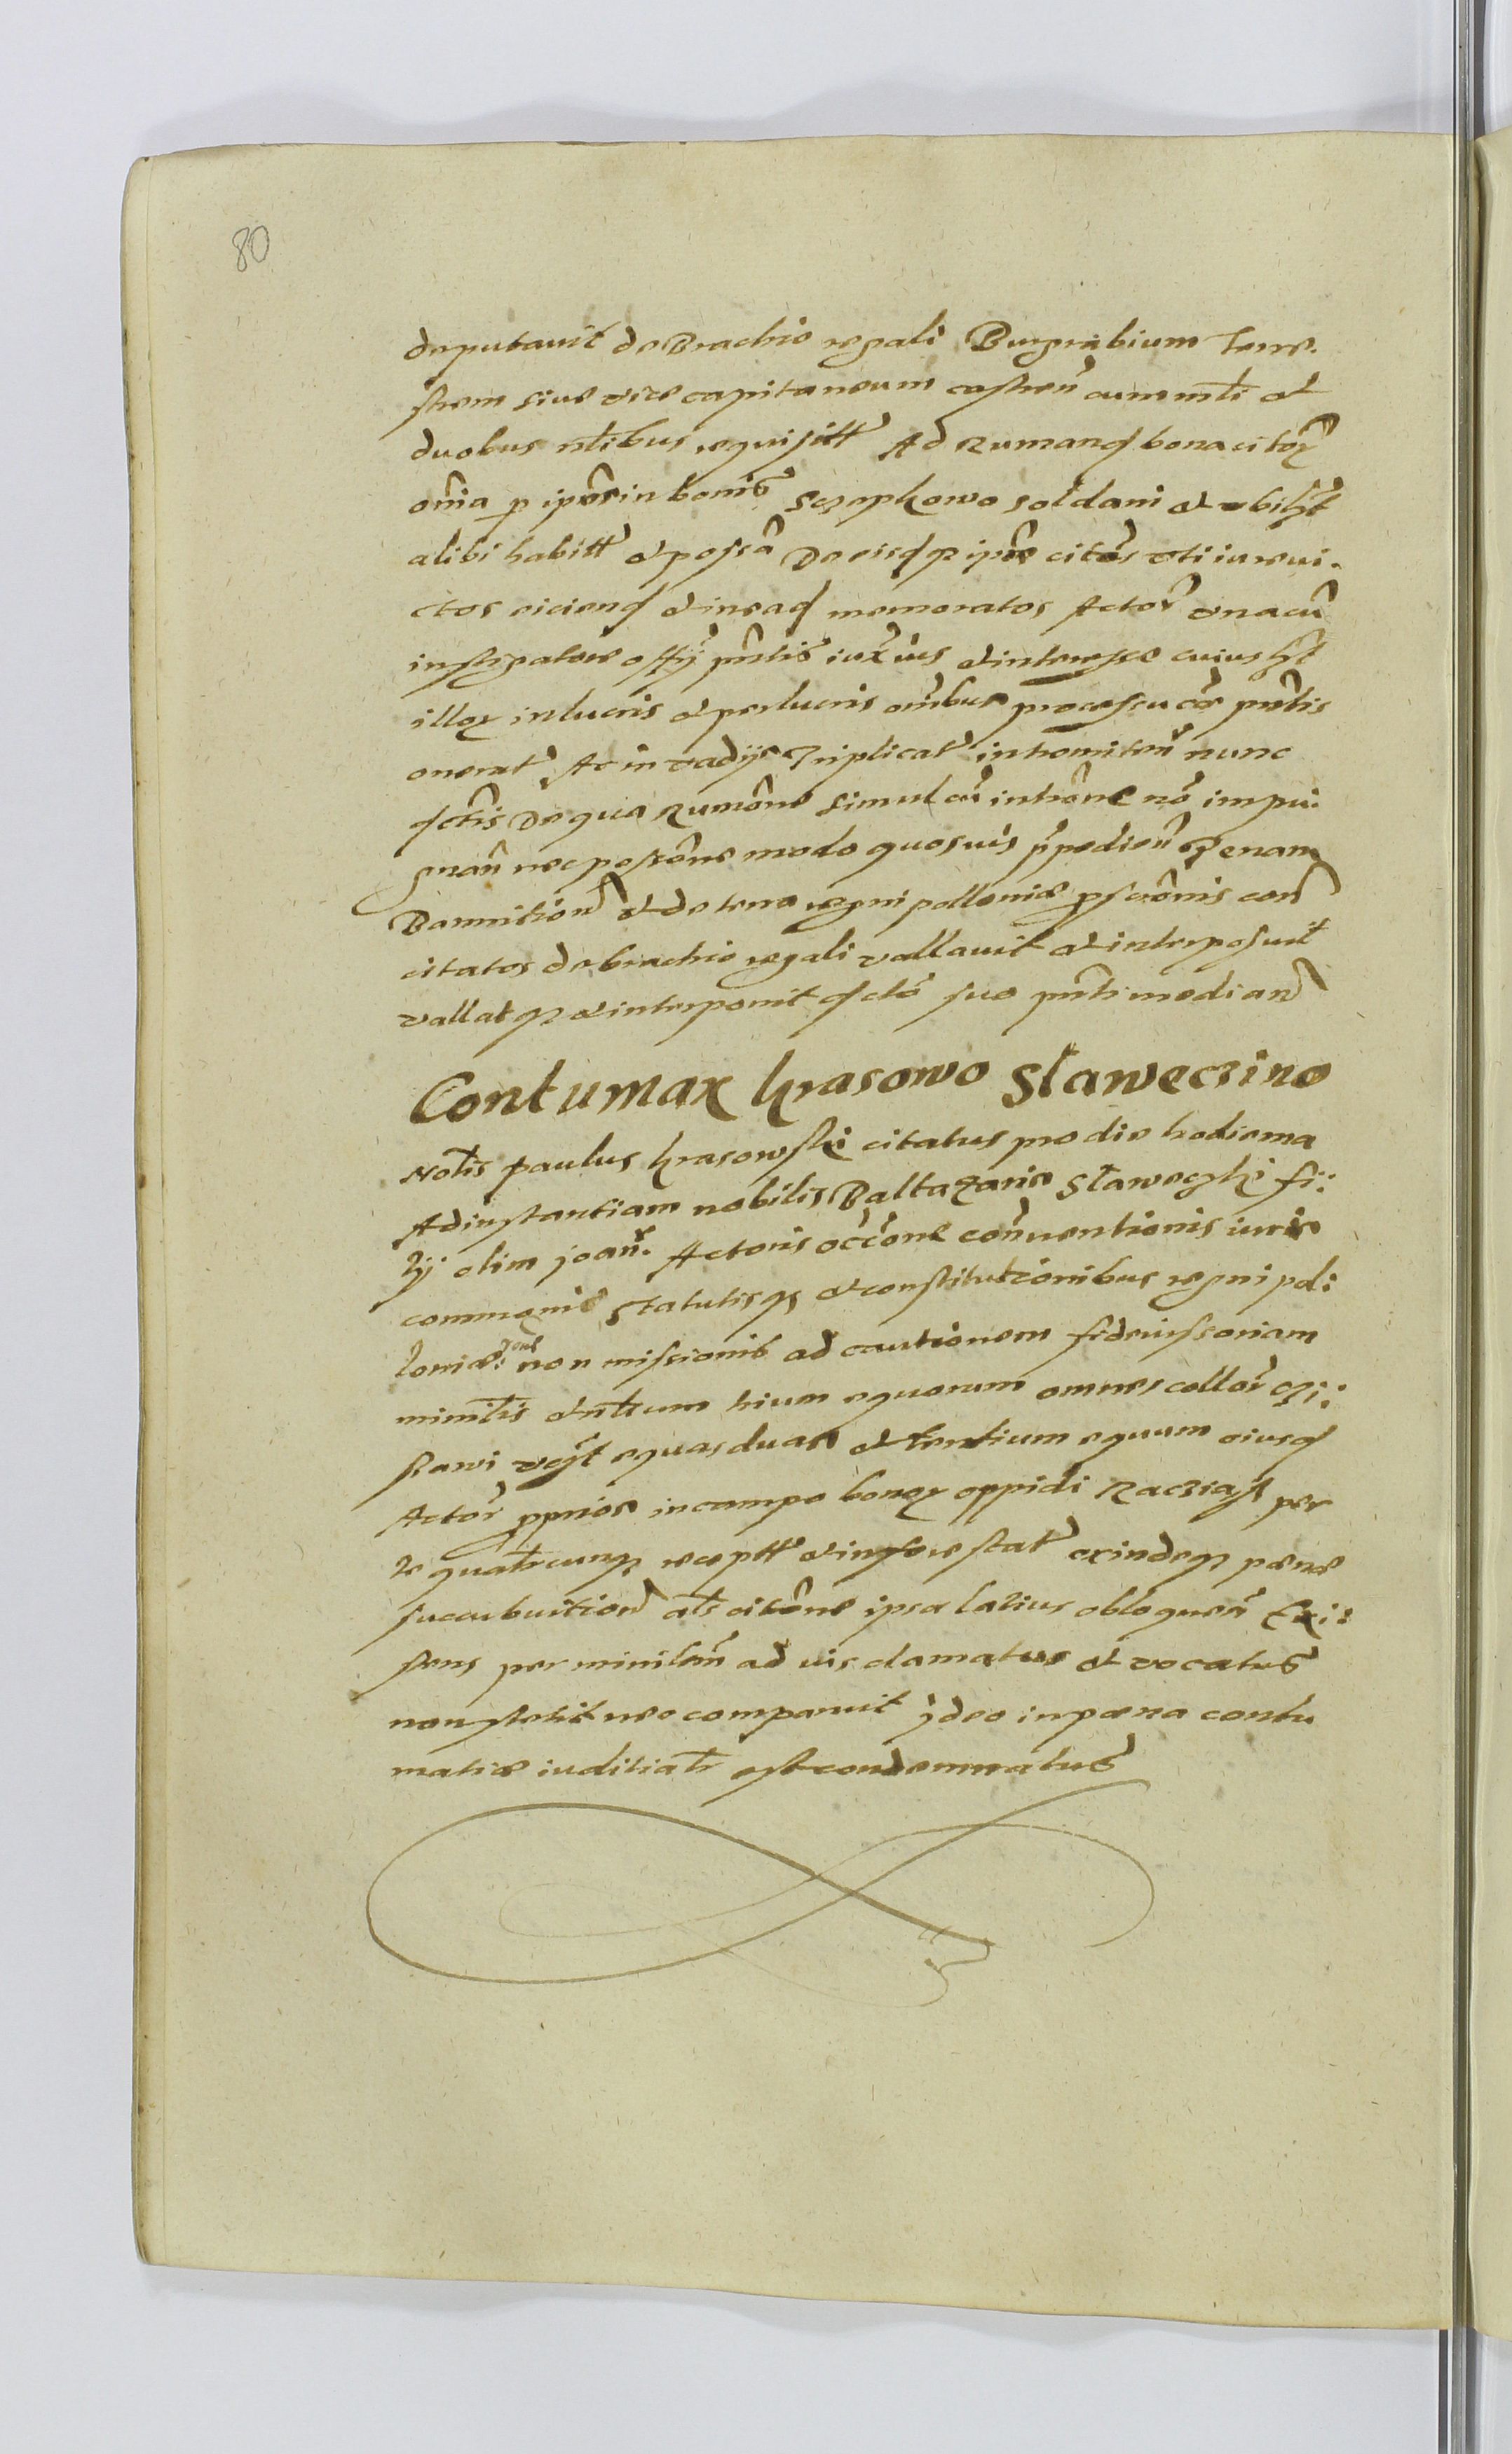 80
deputavit de Brachio regali Burgrabium terre.
strem sive vice capitaneum castreñ cum mĩli et
duobus nõlibus requisitt Ad rumand bona citor
oñia p ipõs in bonis soldani et ubilꝫt
alibi habitt et possã De eisdqꝫ ipõs citõs uti iure vi.
ctos eiciend et in ead memoratos Actoř una cũ
instigatore offy pñtis iux vis et interesse cuiuslꝫt
illoꝝ in lucris et perlucris oñibus processu cõr pñtis
onerat Ac in vadijs Triplicat intromitteñ nunc
De qua rumõne simul cũ intrõne nõ impu:
gnañ nec postõne modo quosvis ppedieñ penam
Bannitioñ et de terra regni polloniæ pscrõnis coñ
citatos de brachio regali vallavit et interposuit
vallat qꝫ et interponit dcto suo pñti median
Contumax krasowo Sławeczino
Nobĩs paulus krasowski citatus pro die hodierna
Ad instantiam nobilis Baltazaris Slaweczki fi:
lÿ olim joañ. Actoris occõne conventionis iuris
communis Statutisqꝫ et constitutionibus regni pol:
loniæ: non missionis ad cautionem fideiussoriam
et trium equorum omnes color
equas duas et tertium equum eiusd
Actoř pprios in campo bonoꝝ oppidi Racziasz per
te qualitercunqꝫ receptt et exindeqꝫ pænæ
succubuitioñ aĩs citõne ipsa latius obloqueñ Exi:
stens per minilem ad uis clamatus et vocatus
non stetit nec comparuit Ideo in pæna contu
matiæ iuditiali est condemnatus